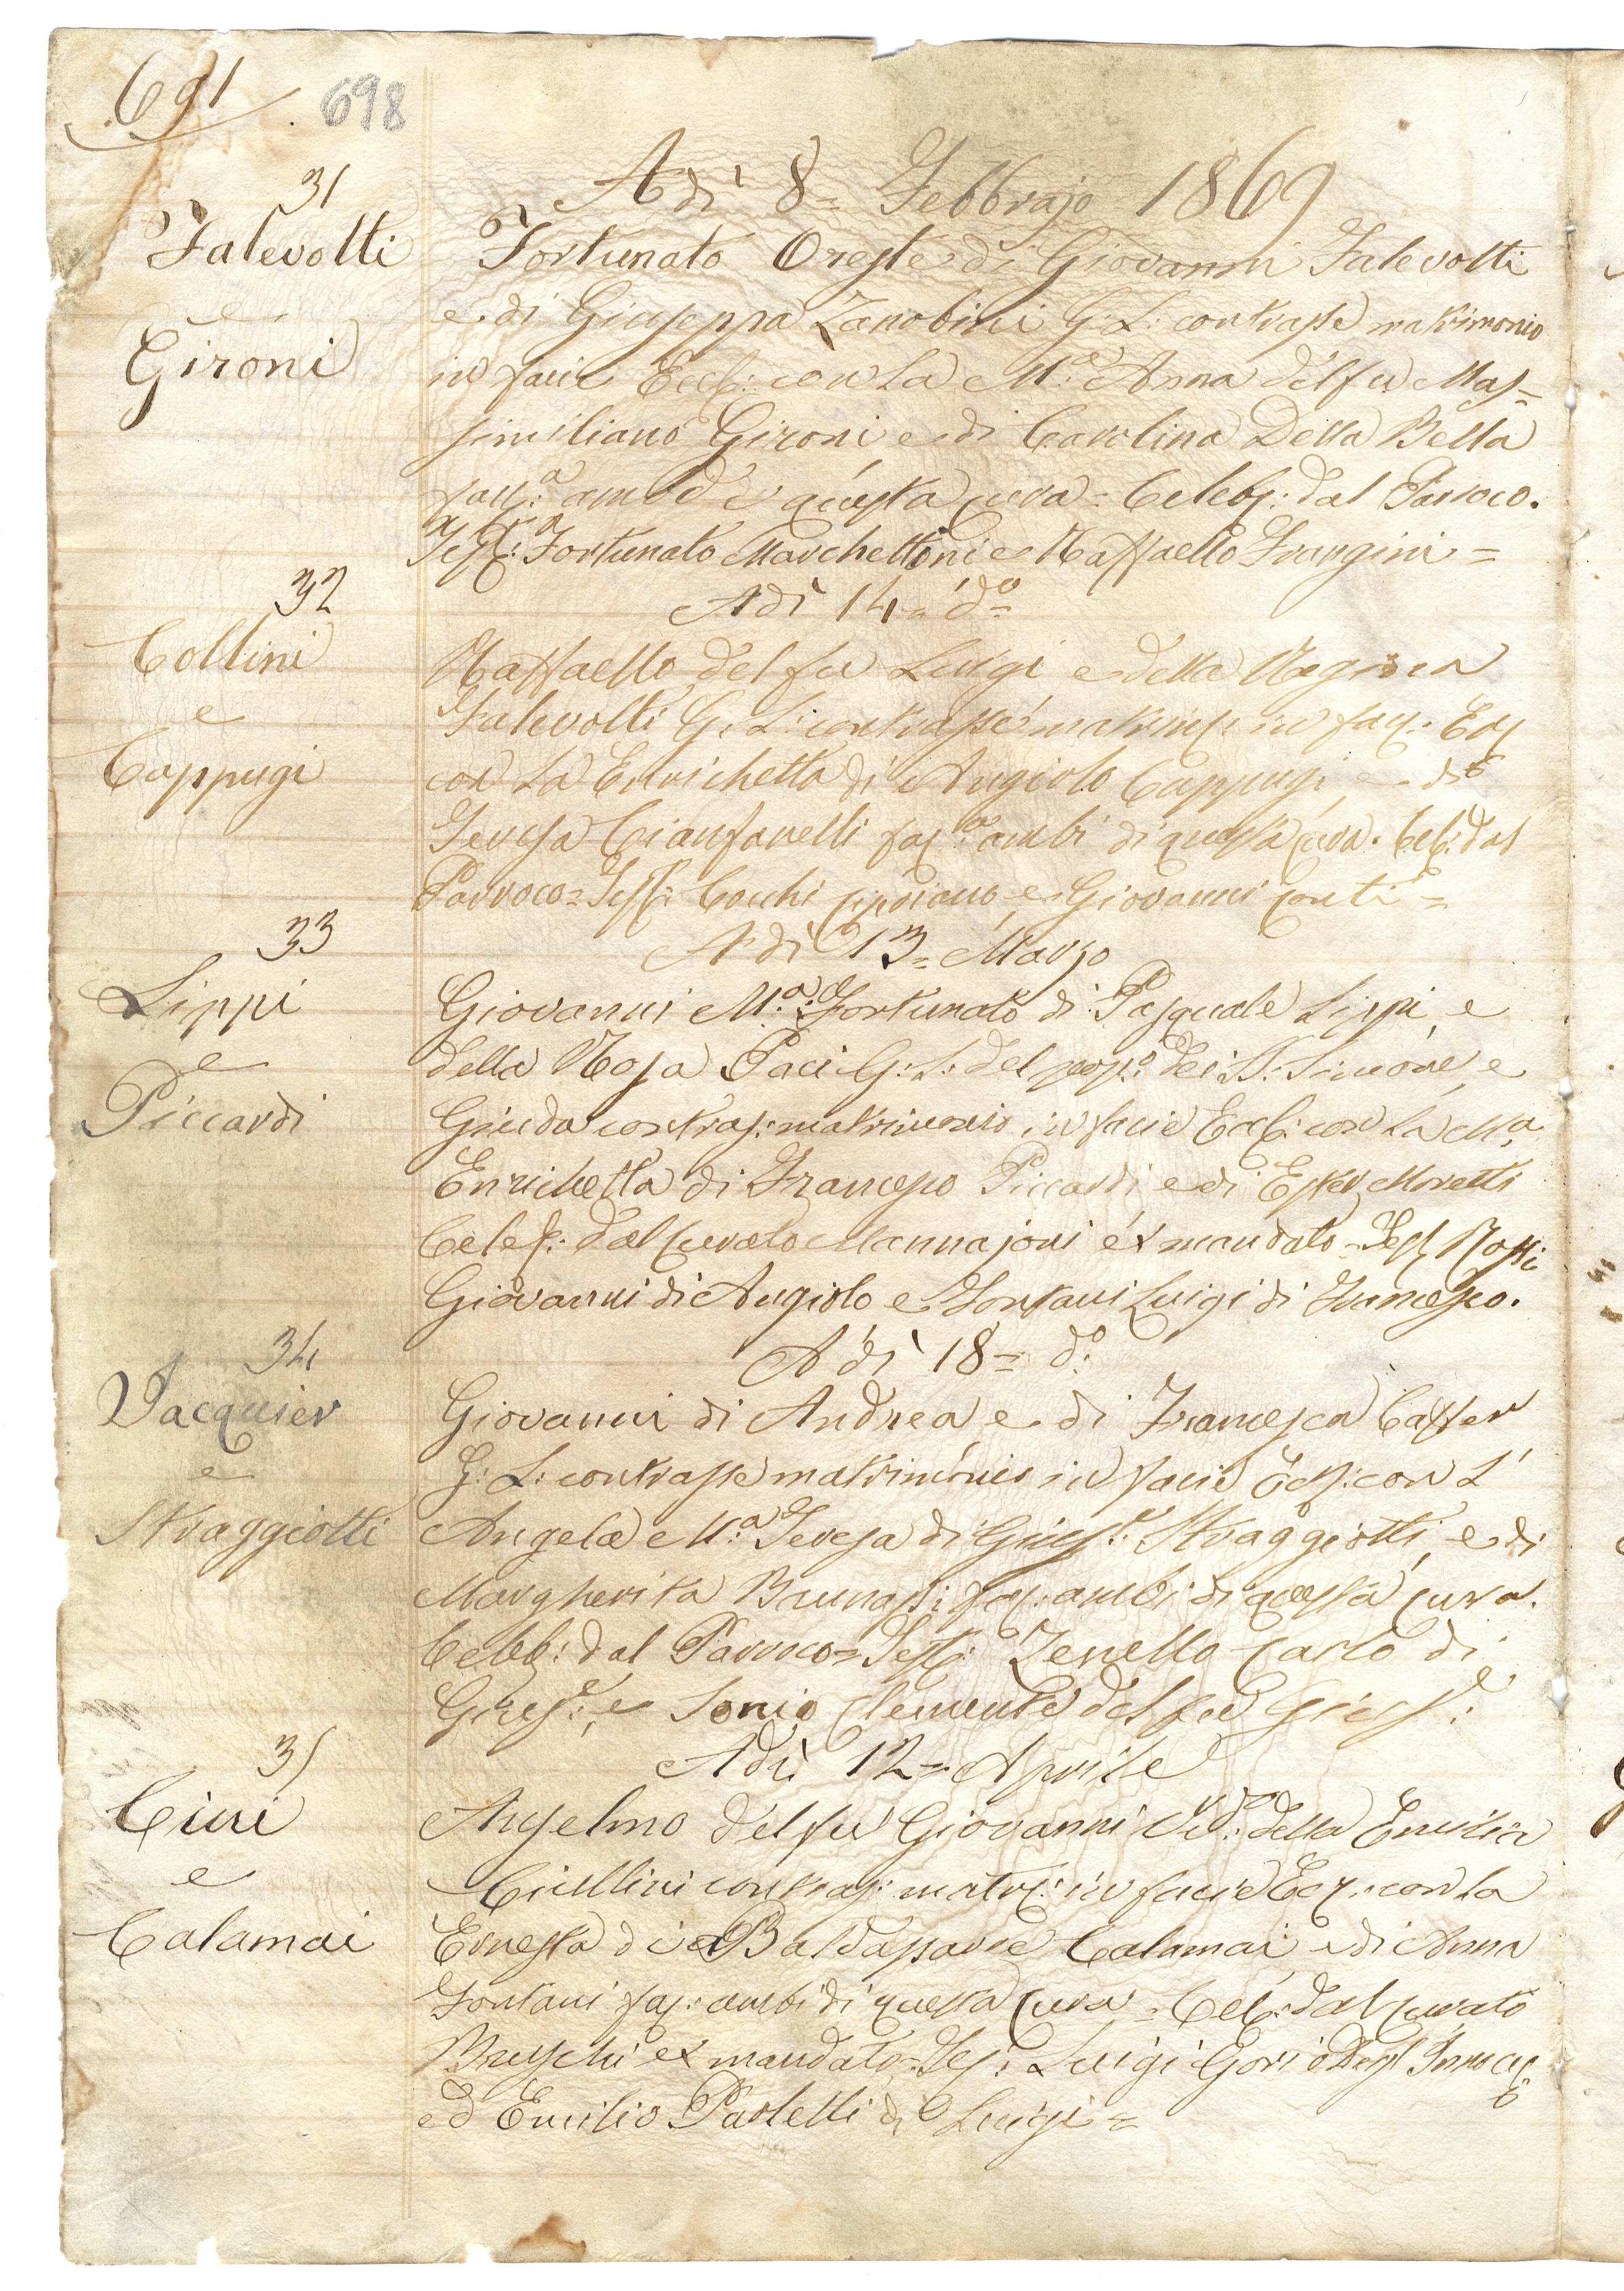 691. 698
Adì 8= Febbrajo 1869
31
Falevolti
e
Gironi
Fortunato Oreste di Giovanni Falevolti
e di Giuseppa Zanobini G: L: contrasse matrimonio
in facie Eccl: con la M.a Anna del fu Mas=
similiano Gironi e di Carolina Della Bella
questa cura = Celeb: dal Parroco.
Test: Fortunato Marchettoni e Raffaello Frangini =
32
Adì 14= do=
Collini
e
Cappugi
Raffaello del fu Luigi e della Regina
Falevolti G: L: contrasse in
con la Enrichetta di Angiolo Cappugi e di
Teresa Cianfanelli ambi di questa cura. Cel: dal
Parroco= Test: Cocchi Cipriano e Giovanni Conti =
33
Adì 13= Marzo
Lippi
e
Piccardi
Giovanni M.a Fortunato di Pasquale Lippi, e
della Rosa Paci G: L: del pop.o dei SS: Simone, e
Giuda contras: matrimonio in facie Eccl: con la M.a
Enrichetta di Francesco Piccardi e di Ester Moretti
Celeb: dal Curato Mannajoni ex mandato = Test: Rossi
Giovanni di Angiolo e Fontani Luigi di Francesco.
34
Adì 18= do:
Jacquier
e
Straggiotti
Giovanni di Andrea e di Francesca Caffer
G: L: contrasse matrimonio in facie Eccl: con L'
Angela M.a Teresa di Gius.e Straggiotti, e di
Margherita ambi di questa cura.
Celeb: dal Parroco= Test: Zenello Carlo di
Gius.e, e Sonio Clemente del fu Gius.e
35
Adì 12= Aprile
Cini
e
Calamai
Anselmo del fu Giovanni Ved.o della Emilia
contras: matr: in facie Ecc: con la
Ernesta di Baldassarre Calamai e di Anna
Fontani ambi di questa cura = Cel: dal Curato
Bruschi ex mandato= Tes: Luigi Gori Degl' Innoc:
ed Emilio Paoletti di Luigi=